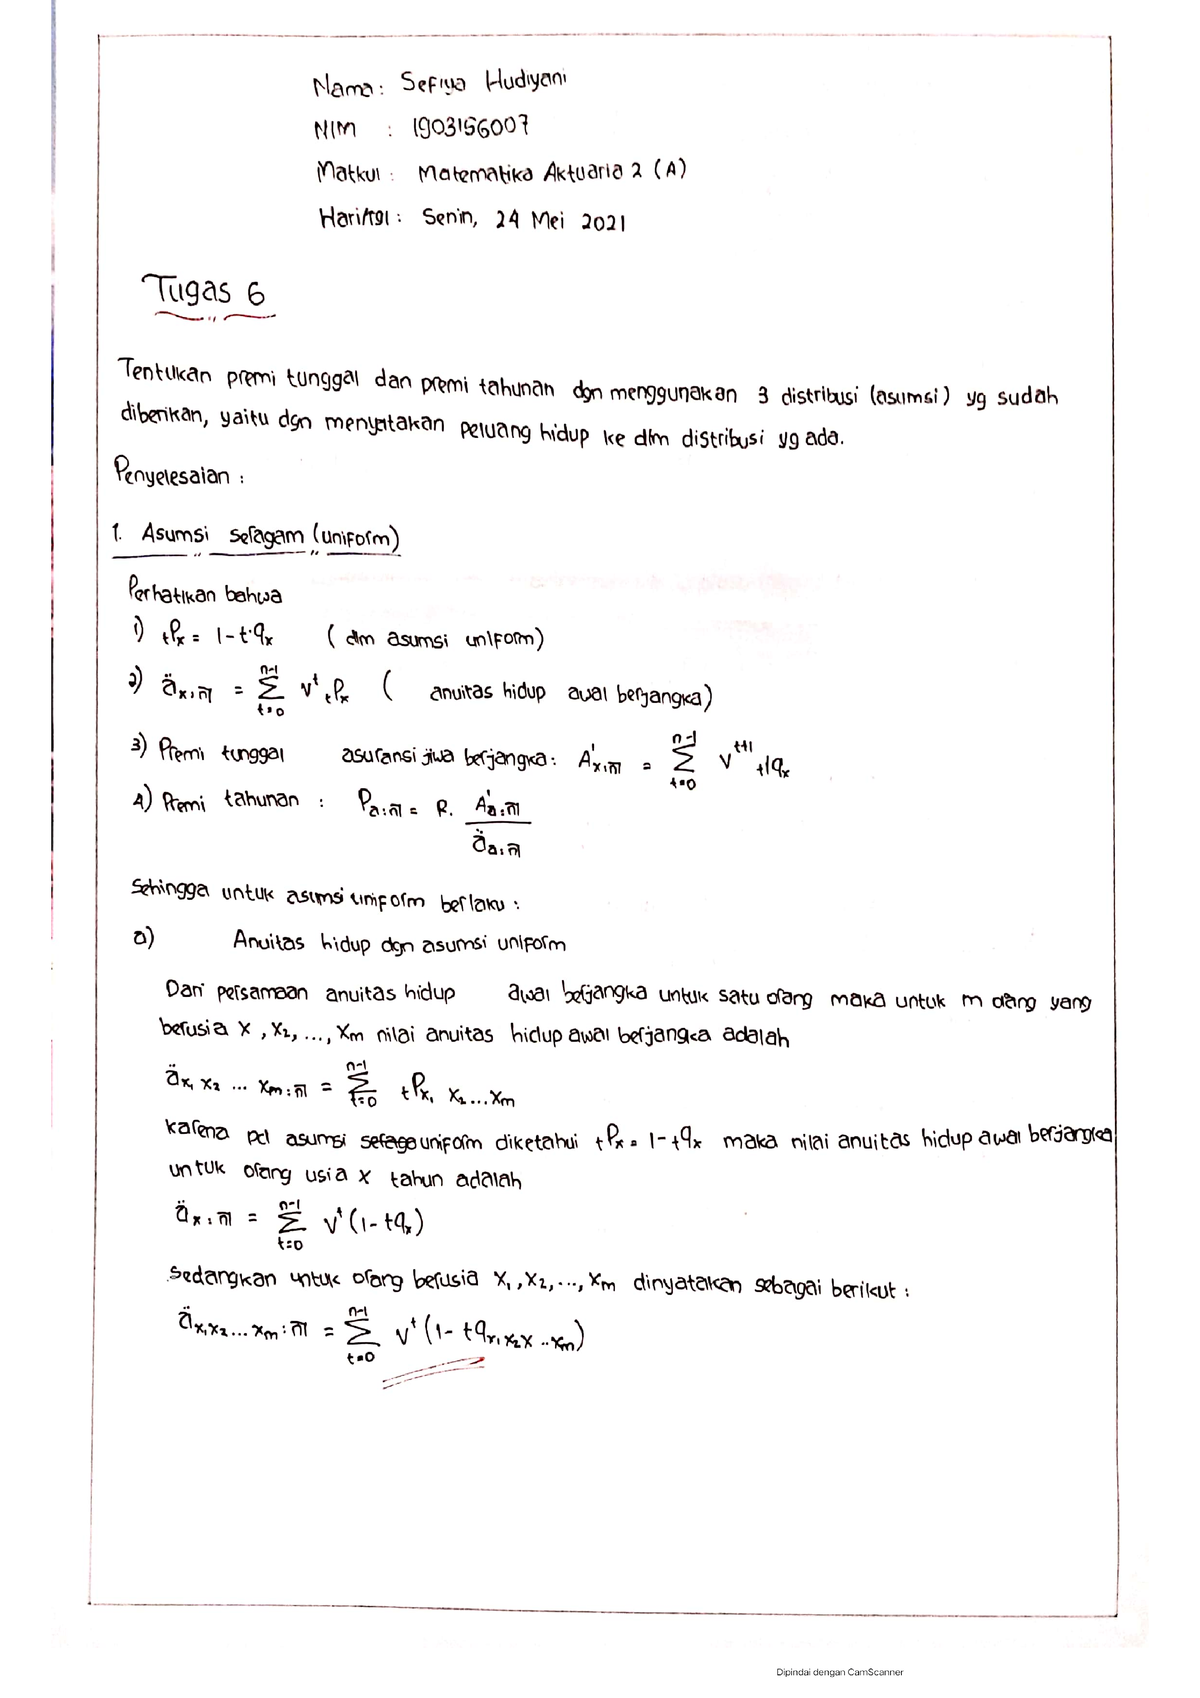 Nama : Sefiya Hudiyani
NIM : 1903156007
Matkul : Matematika Aktuaria 2 (A)
Hari/tgl : Senin, 24 Mei 2021
Tugas 6
Tentukan premi tunggal dan premi tahunan dgn menggunakan 3 distribusi (asumsi) yg sudah
diberikan, yaitu dgn menyatakan peluang hidup ke dlm distribusi yg ada.
Penyelesaian :
1. Asumsi seragam (uniform)
Perhatikan bahwa
1) ₜPₓ = 1 - t·qₓ (dlm asumsi uniform)
2) äₓ,n̅| = Σ_{t=0}^{n-1} vᵗ ₜPₓ ( anuitas hidup awal berjangka)
3) Premi tunggal asuransi jiwa berjangka : A'ₓ,n̅| = Σ_{t=0}^{n-1} v^{t+1} ₜ|qₓ
4) Premi tahunan : P_{a:n̅|} = R. A'_{a:n̅|} / ä_{a:n̅|}
Sehingga untuk asumsi uniform berlaku :
a) Anuitas hidup dgn asumsi uniform
Dari persamaan anuitas hidup awal berjangka untuk satu orang maka untuk m orang yang
berusia x, x₂, ..., xm nilai anuitas hidup awal berjangka adalah
ä_{x₁ x₂ ... xm : n̅|} = Σ_{t=0}^{n-1} ₜP_{x₁ x₂ ... xm}
karena pd asumsi uniform diketahui ₜPₓ = 1 - tqₓ maka nilai anuitas hidup awal berjangka
untuk orang usia x tahun adalah
äₓ : n̅| = Σ_{t=0}^{n-1} vᵗ (1 - tqₓ)
Sedangkan untuk orang berusia x₁, x₂, ..., xm dinyatakan sebagai berikut :
ä_{x₁x₂...xm : n̅|} = Σ_{t=0}^{n-1} vᵗ (1 - tq_{x₁ x₂ x ..xm})
Dipindai dengan CamScanner